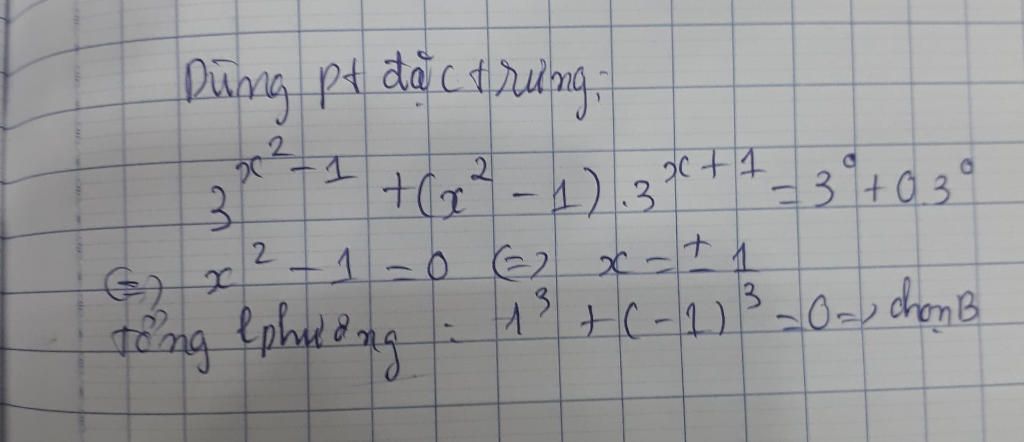 Dùng pt đặc trưng:
3^{x^2-1} + (x^2-1).3^{x+1} = 3^0 + 0.3^0
(=) x^2 - 1 = 0 (=) x = ± 1
tổng lphương : 1^3 + (-1)^3 = 0 => chọn B